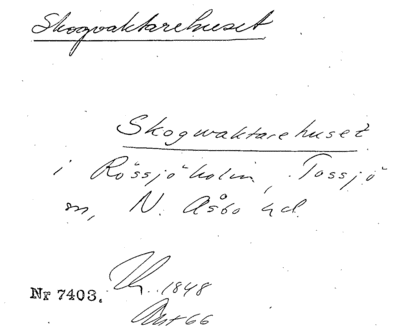 Skogvaktarehuset
Skogwaktarehuset
i Rössjöholm, Tossjö
sn, N. Åsbo hd.
Nr 7403. 1848
66